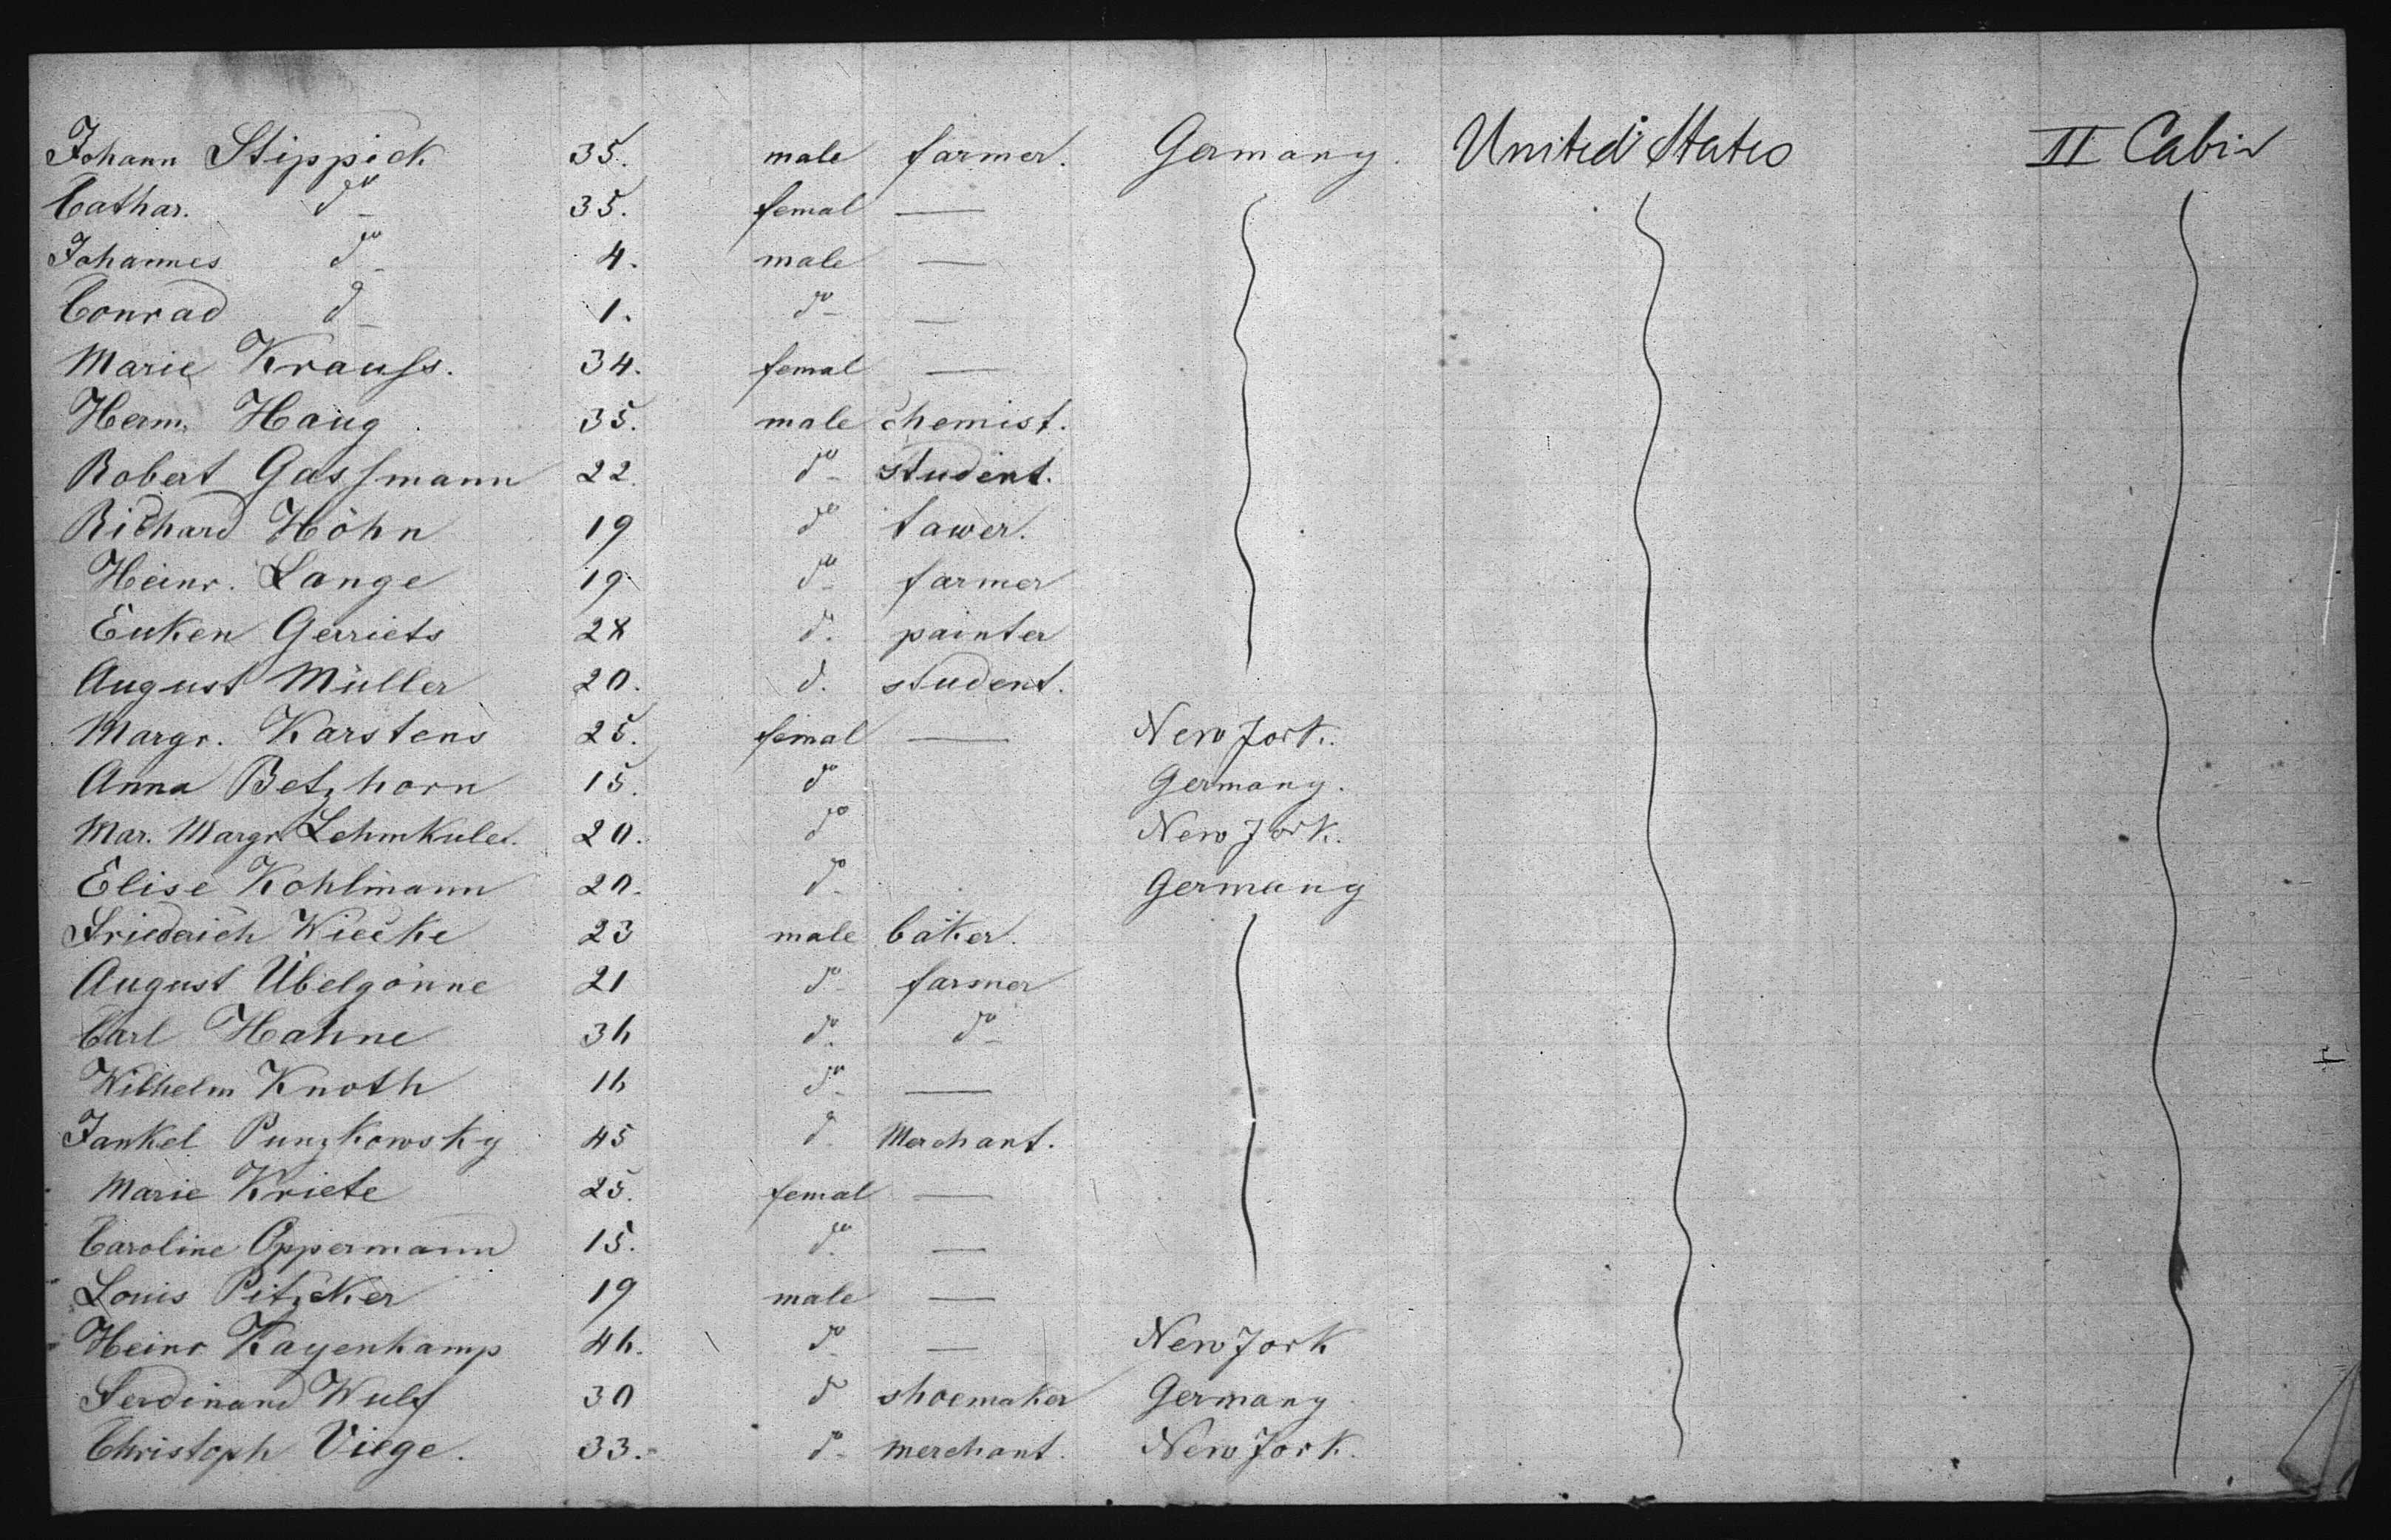 Johann Stippick 35. male farmer. Germany. United States II Cabin
Cathar. do 35. femal —
Johannes do 4. male —
Conrad do 1. do —
Marie Krauss. 34. femal —
Herm. Haug. 35. male chemist.
Robert Gassmann 22. do student.
Richard Höhn 19 do tawer.
Heinr. Lange 19 do farmer
Euken Gerriets 28 do. painter
August Müller 20. do. student.
Margr. Karstens 25. femal — New York.
Anna Betzhorn 15. do Germany.
Mar. Margr. 20. do New York.
Elise Kohlmann 20. do Germany
Friederich Wiecke 23 male baker.
August Übelgönne 21 do farmer
Carl Hahne 36 do. do
Wilhelm Knoth 16 do —
Jankel Punzkowsky 45 do. Merchant.
Marie Kriete 25. femal —
Caroline Oppermann 15. do. —
Louis Pitzcker 19 male —
Heinr Kayenkamp 46. do — New York
Ferdinand Wulf 30 do shoemaker Germany
Christoph Viege. 33. do merchant. New York.